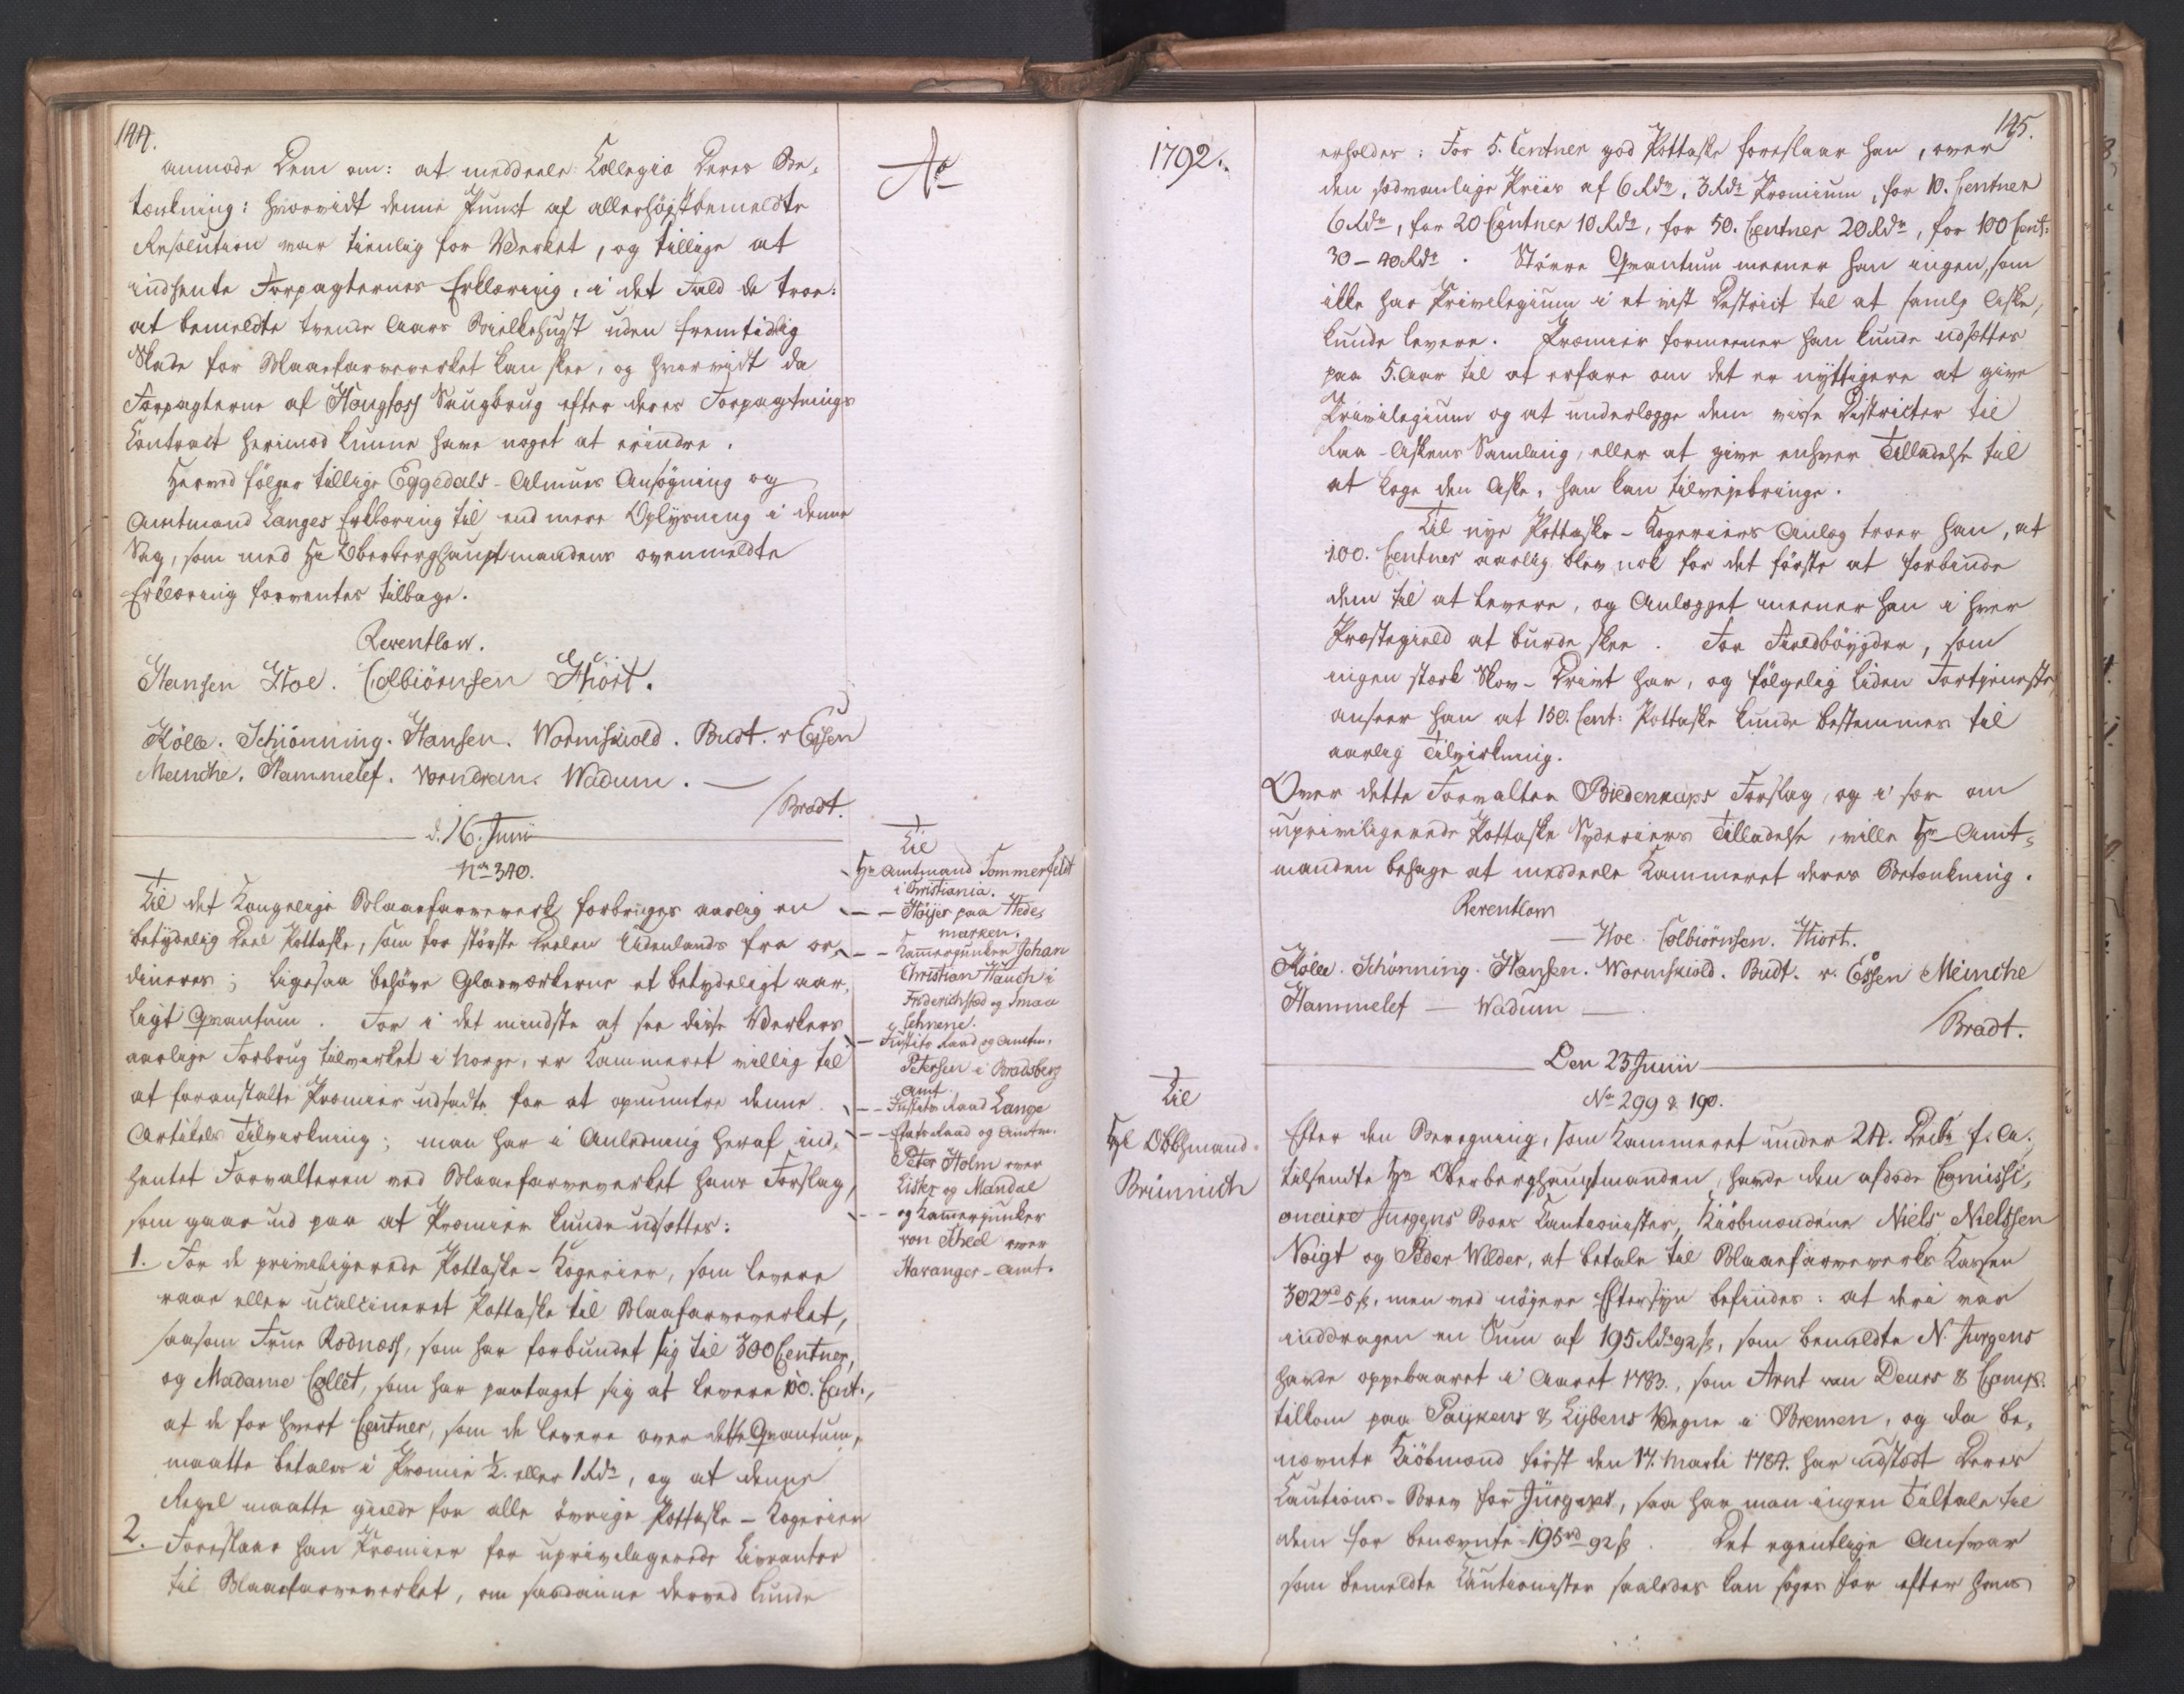 144.
anmode Dem om: at meddeele Collegio Deres Be-
tænkning: hvorvidt denne Punct af allerhøjstbemeldte
Resolution var tienlig for Verket, og tillige at
indhente Forpagternes Erklæring, i det Fald de troe:
at bemeldte trende Aars Bielkehugst uden fremtidig
Skade for Blaaefarveverket kan skee, og hvorvidt da
Forpagterne af Hougfoss Saugbrug efter deres Forpagtnings
Contract herimod kunne have noget at erindre.
Herved følger tillige Eggedals-Almues Ansøgning og
Amtmand Langes Erklæring til end mere Oplysning i denne
Sag, som med Hr Oberberghauptmandens ovenmeldte
Erklæring forventes tilbage.
Reventlow.
Hansen Hoe. Colbiörnsen Hiort.
Kölle. Schiönning. Hansen. Wormskiold. Budt. v Essen
Meinche. Hammelef. Vorndran. Wadum. —
/Bradt.
d. 16. Junii
No 340.
Til det Kongelige Blaaefarveverk forbruges aarlig en
betydelig Deel Pottaske, som for største Deelen Udenlands fra or-
dineres; ligesaa behøve Glasværkerne et betydeligt aar-
ligt Qvantum. For i det mindste at see disse Verkers
aarlige Forbrug tilvirket i Norge, er Kammeret villig til
at foranstalte Præmier udsadte for at opmuntre denne
Artikels Tilvirkning; man har i Anledning heraf ind-
hentet Forvalteren ved Blaaefarveverket hans Forslag,
som gaar ud paa at Præmier kunde udsættes:
1. For de privilegerede Pottaske-Kogerier, som levere
raae eller ucalcineret Pottaske til Blaafarveverket,
saasom Frue Rodness, som har forbundet sig til 300 Centner,
og Madame Collet, som har paataget sig at levere 100. Cent:,
at de for hvert Centner, som de levere over dette Qvantum,
maatte betales i Præmie ½. eller 1 Rdr, og at denne
Regel maatte gielde for alle övrige Pottaske-Kogerier
2. Foreslaar han Præmier for uprivilegerede Livranter
til Blaaefarveverket, om saadanne derved kunde
Ao
Til
Hr Amtmand Sommerfeldt
i Christiania.
— — Höyer paa Hede-
marken.
— — Kammerjunker Johan
Christian Hauch i
Friderichstad og Smaa
Lehnene.
— Justits Raad og Amtm.
Petersen i Bradsberg
Amt.
— — Justits Raad Lange
— — Etats Raad og Amtm.
Peter Holm over
Lister og Mandal
— — og Kammerjunker
von Scheel over
Stavanger-Amt.
1792.
Til
Hr Obbhmand
Brünnich
145.
erholdes: For 5. Centner god Pottaske foreslaar han, over
den sædvanlige Priis af 6 Rdr, 3 Rdr Præmium, for 10. Centner
6 Rdr, for 20 Centner 10 Rdr, for 50. Centner 20 Rdr, for 100 Cent:
30 - 40 Rdr. Större Qvantum meener han ingen, som
ikke har Privilegium i et vist District til at samle Aske,
kunde levere. Præmier formeener han kunde udsættes
paa 5. Aar til at erfare om det er nyttigere at give
Privilegium og at underlægge dem visse Districter til
Raa-Askens Samling, eller at give enhver Tilladelse til
at koge den Aske, han kan tilvejebringe.
Til nye Pottaske-Kogeriers Anlæg troer han, at
100. Centner aarlig blev nok for det förste at forbinde
dem til at levere, og Anlægget meener han i hver
Præstegield at burde skee. For Fieldböygder, som
ingen stærk Skov-Drivt har, og fölgelig liden Fortjeneste,
anseer han at 150. Cent: Pottaske kunde bestemmes til
aarlig Tilvirkning.
Over dette Forvalter Biedenkaps Forslag, og i sær om
uprivilegerede Pottaske Syderiers Tilladelse, ville Hr Amt-
manden behage at meddeele Kammeret deres Betænkning.
Reventlow
— Hoe. Colbiörnsen. Hiort.
Kölle. Schönning. Hansen. Wormskiold. Budt. v. Essen Meinche
Hammelef — Wadum —
/Bradt.
Den 23 Junii
No 299 & 190.
Efter den Beregning, som Kammeret under 24. Decbr f. A.
tilsendte Hr Oberberghauptmanden, havde den afdøde Comissi-
onaire Jurgens Boes Cautionister, Kiöbmændene Niels Nielssen
Voigt og Peder Wilder, at betale til Blaaefarveverks Kassen
302 rd 5 ß, men ved nöyere Eftersyn befindes: at deri var
inddragen en Sum af 195 Rdr 92 ß, som bemeldte N. Jurgens
havde oppebaaret i Aaret 1783., som Arnt van Deurs & Comp.
tilkom paa Paykens & Lybens Vegne i Bremen, og da be-
nævnte Kiöbmænd först den 17. Marti 1784. har udstædt Deres
Cautions-Brev for Jürgens, saa har man ingen Tiltale til
dem for benævnte 195 rd 92 ß. Det egentlige Ansvar
som bemeldte Cautionister saaledes kan söges for efter hans